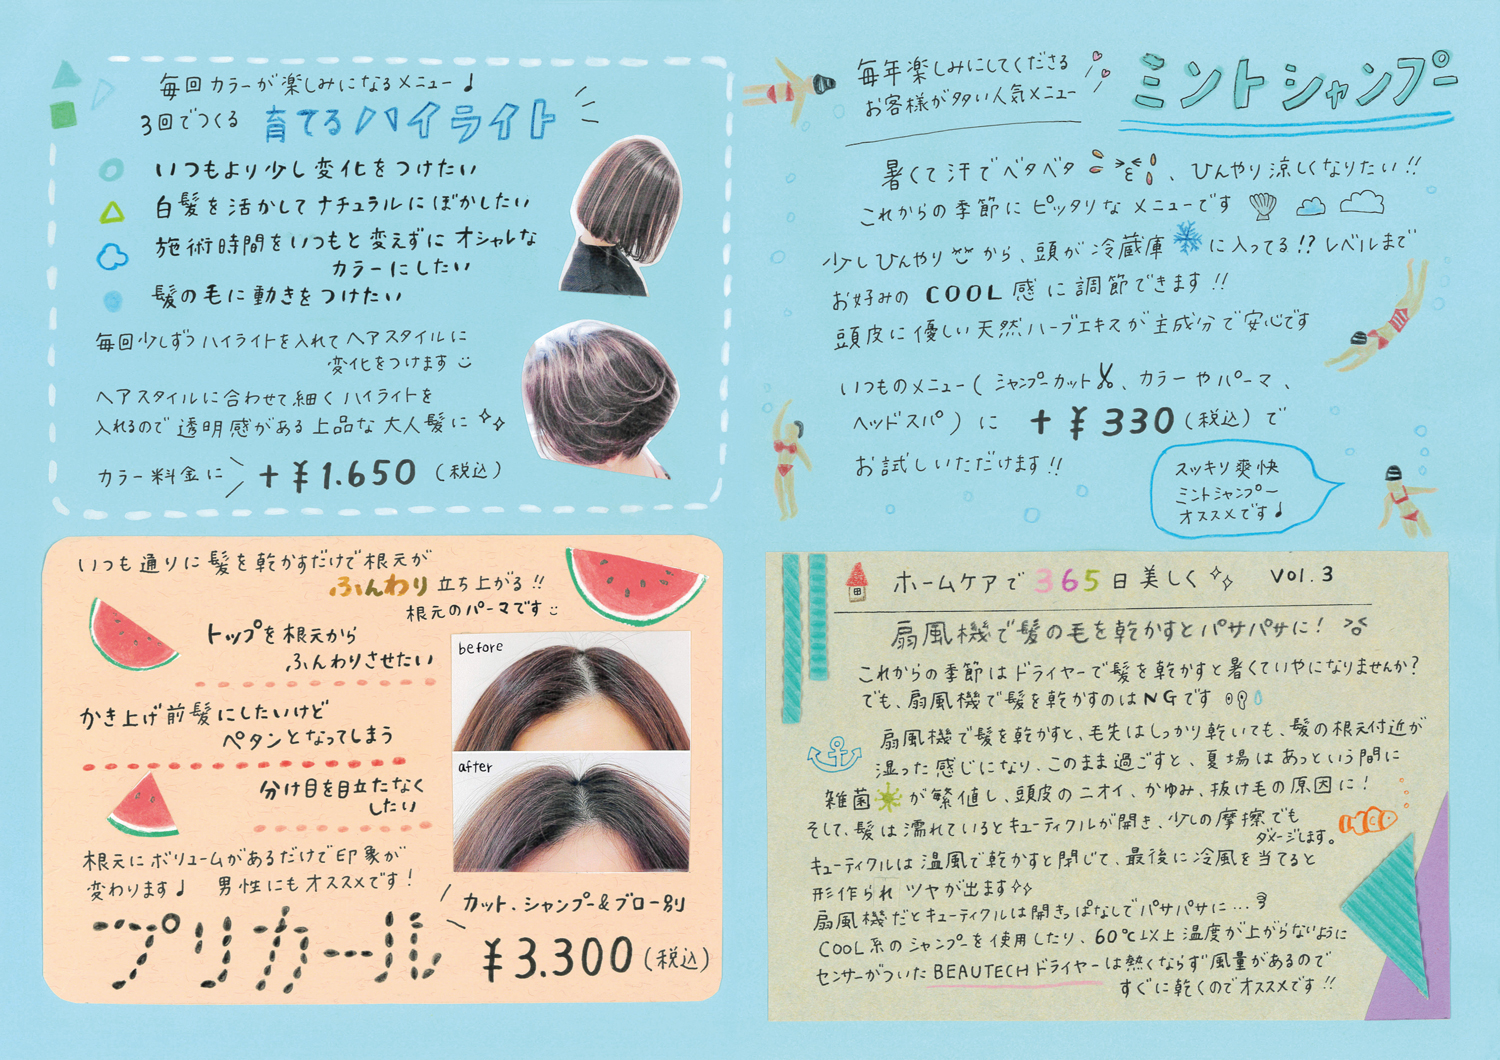 毎回カラーが楽しみになるメニュー♩
3回でつくる 育てるハイライト
いつもより少し変化をつけたい
白髪を活かしてナチュラルにぼかしたい
施術時間をいつもと変えずにオシャレな
カラーにしたい
髪の毛に動きをつけたい
毎回少しずつハイライトを入れてヘアスタイルに
変化をつけます
ヘアスタイルに合わせて細くハイライトを
入れるので透明感がある上品な大人髪に
カラー料金に +¥1.650(税込)
毎年楽しみにしてくださる
お客様が多い人気メニュー
ミントシャンプー
暑くて汗でベタベタ、ひんやり涼しくなりたい!!
これからの季節にピッタリなメニューです
少しひんやりから、頭が冷蔵庫に入ってる!?レベルまで
お好みのCOOL感に調節できます!!
頭皮に優しい天然ハーブエキスが主成分で安心です
いつものメニュー(シャンプーカット、カラーやパーマ、
ヘッドスパ)に +¥330(税込)で
お試しいただけます!!
スッキリ爽快
ミントシャンプー
オススメです♩
いつも通りに髪を乾かすだけで根元が
ふんわり立ち上がる!!
根元のパーマです
トップを根元から
ふんわりさせたい
かき上げ前髪にしたいけど
ペタンとなってしまう
分け目を目立たなく
したい
before
after
根元にボリュームがあるだけで印象が
変わります♩ 男性にもオススメです!
プリカール
カット、シャンプー&ブロー別
¥3.300(税込)
ホームケアで365日美しく VOl.3
扇風機で髪の毛を乾かすとパサパサに!
これからの季節はドライヤーで髪を乾かすと暑くていやになりませんか?
でも、扇風機で髪を乾かすのはNGです
扇風機で髪を乾かすと、毛先はしっかり乾いても、髪の根元付近が
湿った感じになり、このまま過ごすと、夏場はあっという間に
雑菌が繁値し、頭皮のニオイ、かゆみ、抜け毛の原因に!
そして、髪は濡れているとキューティクルが開き、少しの摩擦でも
ダメージします。
キューティクルは温風で乾かすと閉じて、最後に冷風を当てると
形作られツヤが出ます
扇風機だとキューティクルは開きっぱなしでパサパサに…
COOL系のシャンプーを使用したり、60℃以上温度が上がらないように
センサーがついたBEAUTECHドライヤーは熱くならず風量があるので
すぐに乾くのでオススメです!!